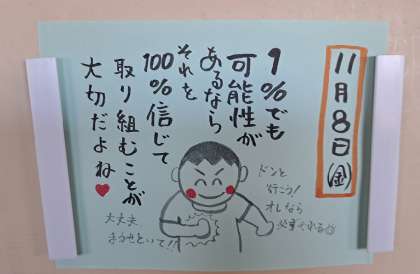 11月8日(金)
1%でも
可能性が
あるなら
それを
100%信じて
取り組むことが
大切だよね♥
ドンと
行こう!
オレなら
必ずやれる
大丈夫
まかせといて!!